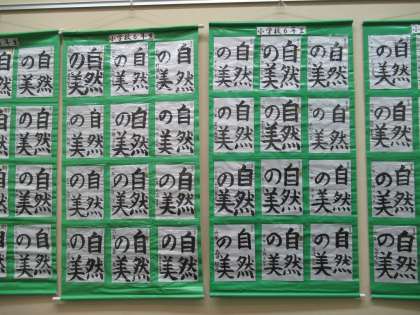 自然
自然
の美
自然
自然
の美
自然
自然
の美
自然
自然
の美
小学校6年生
自然
の美
自然
の美
自然
の美
自然
の美
自然
の美
自然
の美
自然
の美
自然
の美
自然
の美
自然
の美
自然
の美
自然
の美
小学校6年生
自然
の美
自然
の美
自然
の美
自然
の美
自然
の美
自然
の美
自然
の美
自然
の美
自然
の美
自然
の美
自然
の美
自然
の美
自然
の美
自然
の美
自然
の美
自然
の美